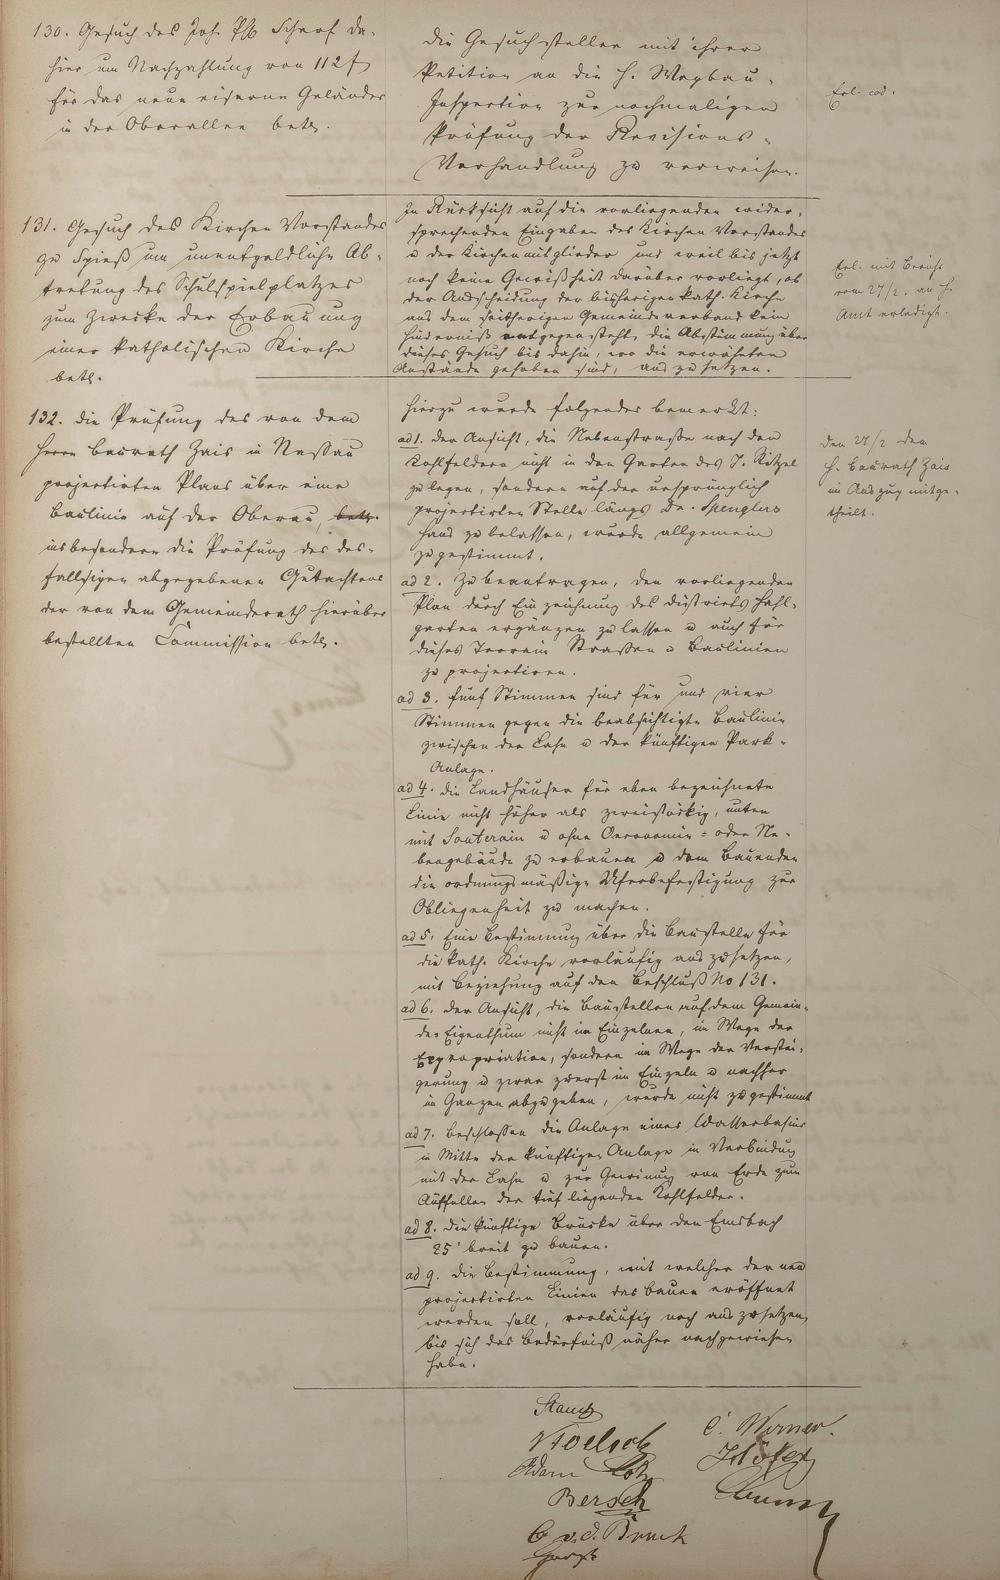 130. Gesuch des Joh. Ph. Scharf da-
hier um Nachzahlung von 112 f
für das neue eiserne Geländer
in der Oberallee betr.
die Gesuchsteller mit ihrer
Petition an die H. Wegbau-
Inspection zur nochmaligen
Prüfung der Revisions-
Verhandlung zu verweisen.
Erl. eod.
131. Gesuch des Kirchen Vorstandes
zu Spieß um unentgeldliche Ab-
tretung des Schulspielplatzes
zum Zwecke der Erbauung
einer katholischen Kirche
betr.
In Rücksicht auf die vorliegenden wider-
sprechenden Eingaben des Kirchen Vorstandes
u der Kirchenmitglieder und weil bis jetzt
noch keine Gewißheit darüber vorliegt, ob
der Ausscheidung der bisherigen kath. Kirche
aus dem seitherigen Gemeindeverband kein
Hinderniß entgegensteht, die Abstimmung über
dieses Gesuch bis dahin, wo die erwähnten
Anstände gehoben sind, auszusetzen.
Erl. mit Bericht
vom 27/2. an H.
Amt erledigt.
132. die Prüfung des von dem
Herrn Baurath Zais in Nassau
projectirten Plans über eine
Baulinie auf der Oberau betr.
insbesondere die Prüfung des des-
fallsigen abgegebenen Gutachtens
der von dem Gemeinderath hierüber
bestellten Commission betr.
Hierzu wurde folgendes bemerkt:
ad 1. der Ansicht, die Nebenstraße nach den
Kohlfeldern nicht in den Garten des J. Kitzel
zu legen, sondern auf der ursprünglich
projectirten Stelle längs Dr. Spenglers
Haus zu belassen, wurde allgemein
zugestimmt.
ad 2. Zu beantragen, den vorliegenden
Plan durch Einzeichnung des Districts Hahl-
garten ergänzen zu lassen u auch für
dieses Terrain Straßen u Baulinien
zu projectiren.
ad 3. fünf Stimmen sind für und vier
Stimmen gegen die beabsichtigte Baulinie
zwischen der Lahn u der künftigen Park-
Anlage.
ad 4. die Landhäuser für eben bezeichnete
Linie nicht höher als zweistöckig, unten
mit Souterain u ohne Oeconomie- oder Ne-
bengebäude zu erbauen u dem Bauenden
die ordnungsmäßige Uferbefestigung zur
Obliegenheit zu machen.
ad 5. Eine Bestimmung über die Baustelle für
die kath. Kirche vorläufig auszusetzen,
mit Beziehung auf den Beschluß No 131.
ad 6. der Ansicht, die Baustellen auf dem Gemein-
de-Eigenthum nicht im Einzelnen, im Wege der
Expropriation, sondern im Wege der Verstei-
gerung u zwar zuerst im Einzeln u nachher
im Ganzen abzugeben, wurde nicht zugestimmt
ad 7. Beschlossen die Anlage eines Wasserbasins
in Mitte der künftigen Anlage in Verbindung
mit der Lahn u zur Gewinnung von Erde zum
Auffüllen der tief liegenden Kohlfelder.
ad 8. die künftige Brücke über den Emsbach
25' breit zu bauen.
ad 9. die Bestimmung, mit welcher der neu
projectirten Linien das Bauen eröffnet
werden soll, vorläufig noch auszusetzen,
bis sich das Bedürfniß näher nachgewiesen
habe.
den 27/2 dem
H. Baurath Zais
im Auszug mitge-
theilt.
C. Werner.
Adam
Bersch
C v. d. Bruck